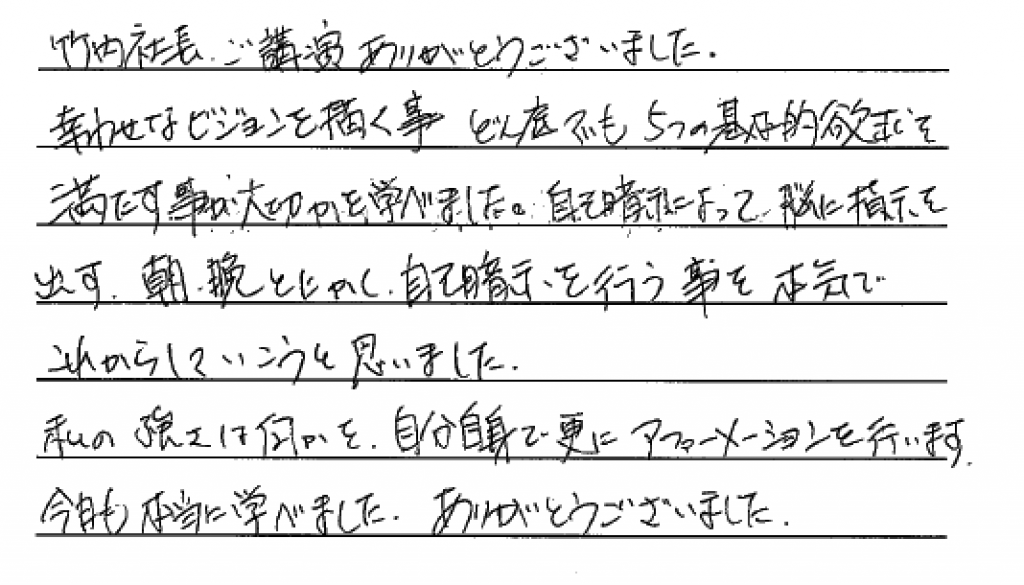 竹内社長、ご講演ありがとうございました。
幸わせなビジョンを描く事 どん底でも 5つの基本的欲求を
満たす事が大切かを学べました。自己暗示によって、脳に指示を
出す、朝、晩とにかく、自己暗示を行う事を 本気で
これからしていこうと思いました。
私の強さは何かを、自分自身で更に アファーメーションを行います。
今日も本当に学べました。ありがとうございました。